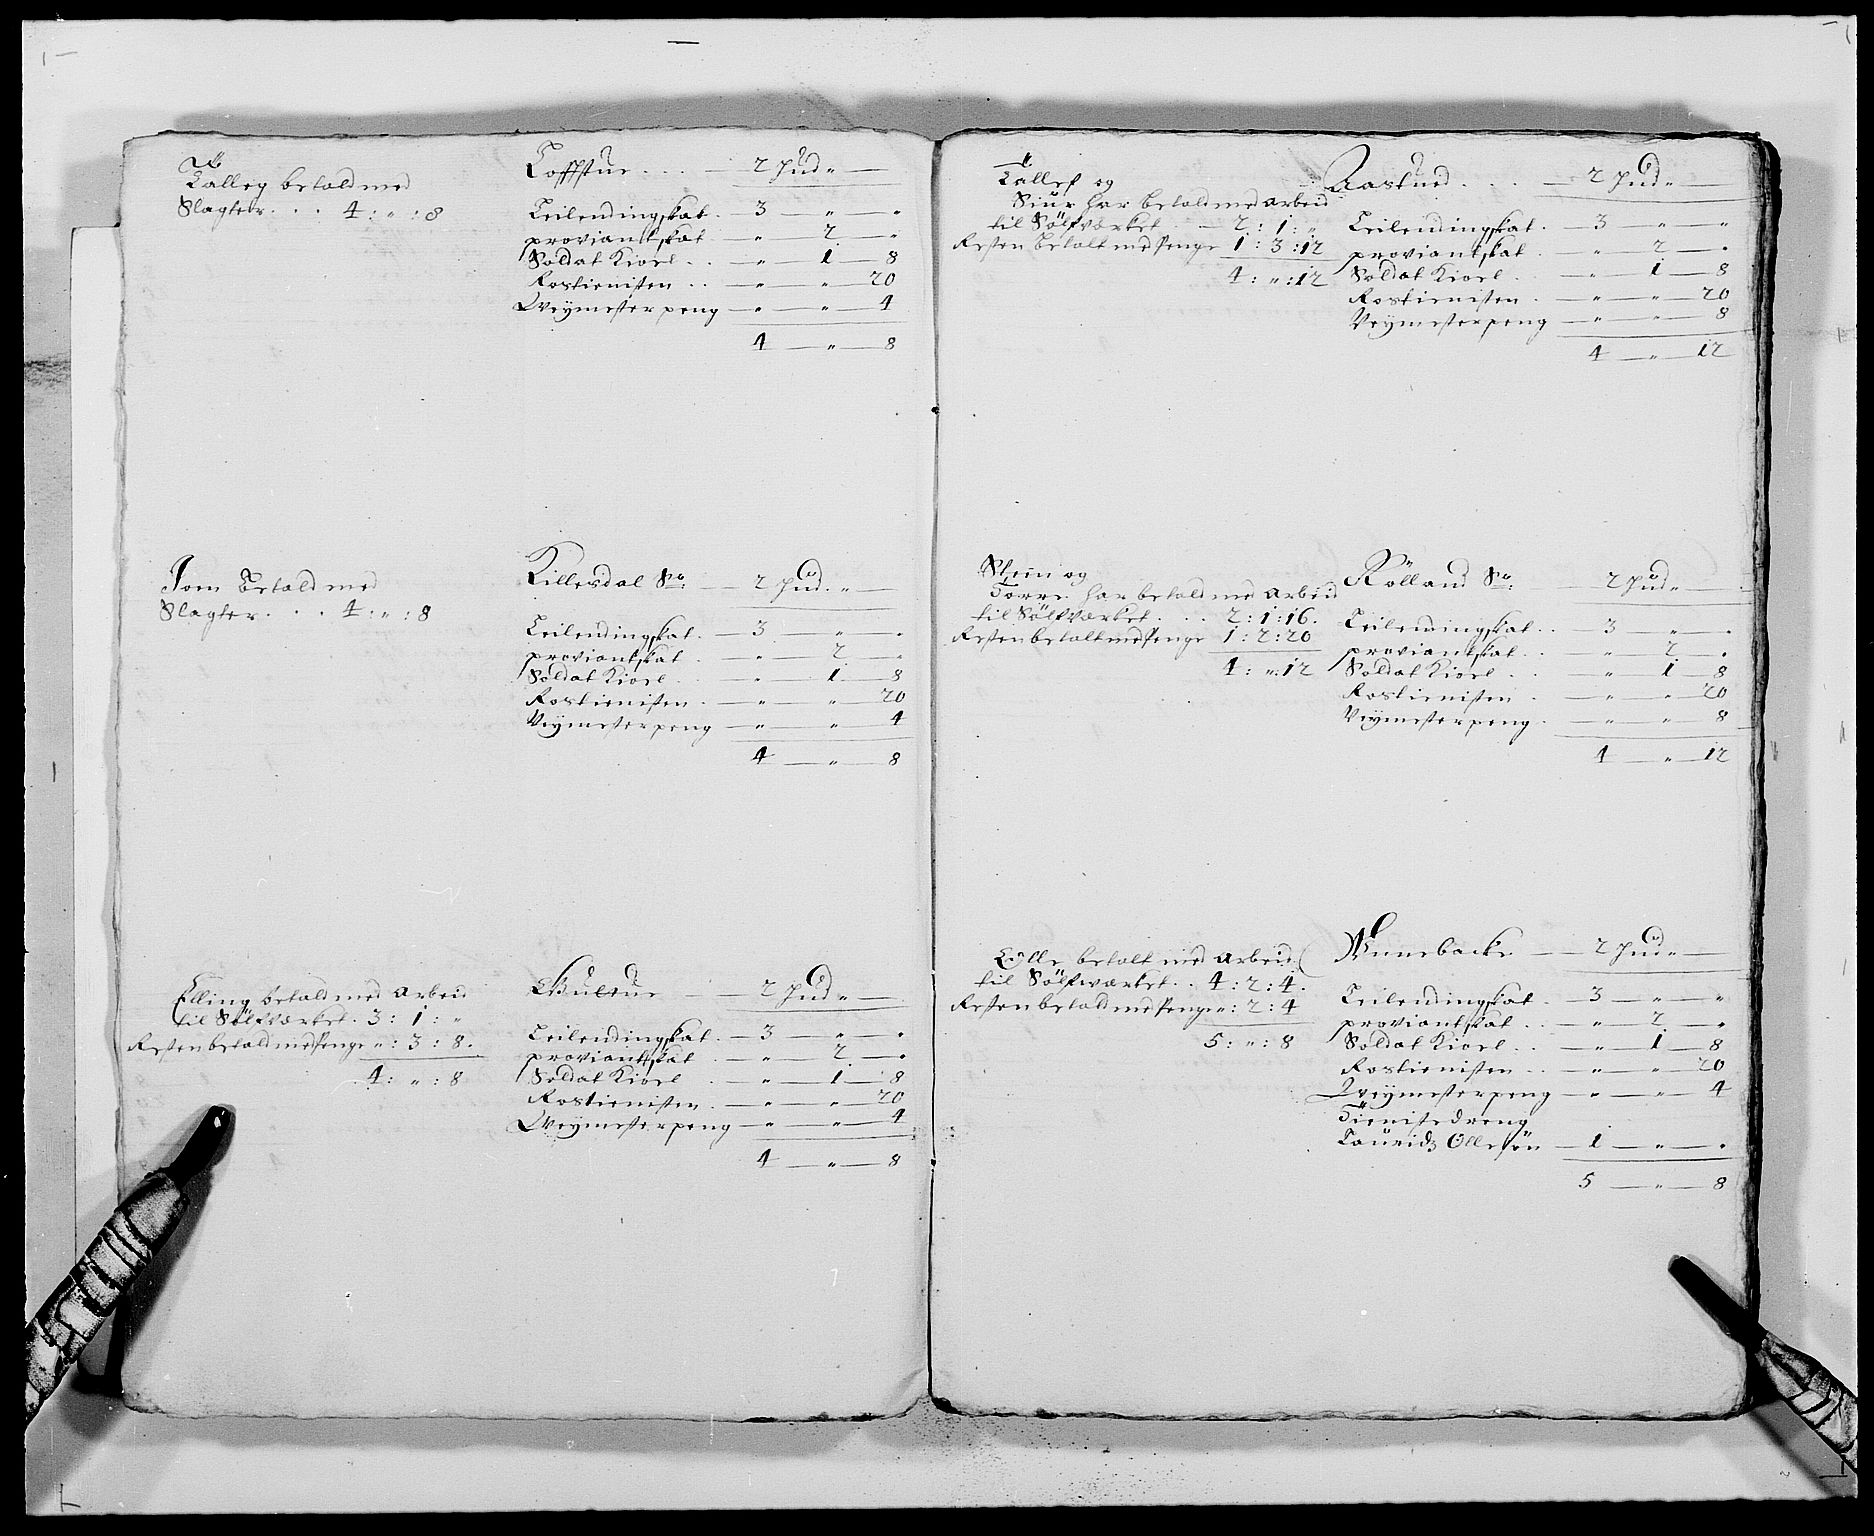 Talleg betald med
Slagter . . . 4 : „ : 8
Tofftuer . . . — 2 Hud „ —
Leilendingskat . — 3 — „ — „
proviantskat — „ — 2 — „
Soldat Kioel . . — „ — 1 — 8
Rostienisten . . — „ — „ — 20
Weymesterpeng — „ — „ — 4
4 — „ — 8
Jorn Betald med
Slagter . . . 4 : „ : 8
Killesdal — 2 Hud „ —
Leilendingskat . — 3 — „ — „
proviantskat . — „ — 2 — „
Soldat Kioel . . — „ — 1 — 8
Rostienisten . — „ — „ — 20
Veymesterpeng — „ — „ — 4
4 — „ — 8
Elling betald med arbeid
til Sölfværket . 3 : 1 : „
Resten betald med Penge „ : 3 : 8 .
4 : „ : 8
— 2 Hud „ —
Leilendingskat . — 3 — „ — „
proviantskat . — „ — 2 — „
Soldat Kioel . — „ — 1 — 8
Rostienisten . — „ — „ — 20
Weymesterpeng — „ — „ — 4
4 — „ — 8
Tallef og
Siur har betald med arbeid
til Sölfværket . — 2 : 1 : „
Resten betalt med Penge 1 : 3 : 12
4 : „ : 12
Aastued . . . — 2 Hud „ —
Leilendingskat . — 3 — „ — „
proviantskat . — „ — 2 — „
Soldat Kioel . . — „ — 1 — 8
Rostienisten . — „ — „ — 20
Veymesterpeng — „ — „ — 8
4 — „ — 12
Stein og
Torre har betald med arbeid
til Sölfværket . . . 2 : 1 : 16 .
Resten betalt med Penge 1 : 2 : 20
4 : „ : 12
Rölland — 2 Hud „ —
Leilendingskat . . 3 — „ — „
proviantskat . . — „ — 2 — „
Soldat Kioel . . — „ — 1 — 8
Rostienisten . — „ — „ — 20
Veymesterpeng . — „ — „ — 8
4 — „ — 12
Olle betalt med arbeid
til Sölfwærket . . 4 : 2 : 4 .
Resten betald med Penge „ : 2 : 4
5 : „ : 8
Winnebacke — 2 Hud „ —
Leilendingskat . — 3 — „ — „
proviantskat . . — „ — 2 — „
Soldat Kioel . . — „ — 1 — 8
Rostienisten . . — „ — „ — 20
Weymesterpeng — „ — „ — 4
Tienistedreng
Lauridz Ollesön — 1 — „ — „
5 — „ — 8